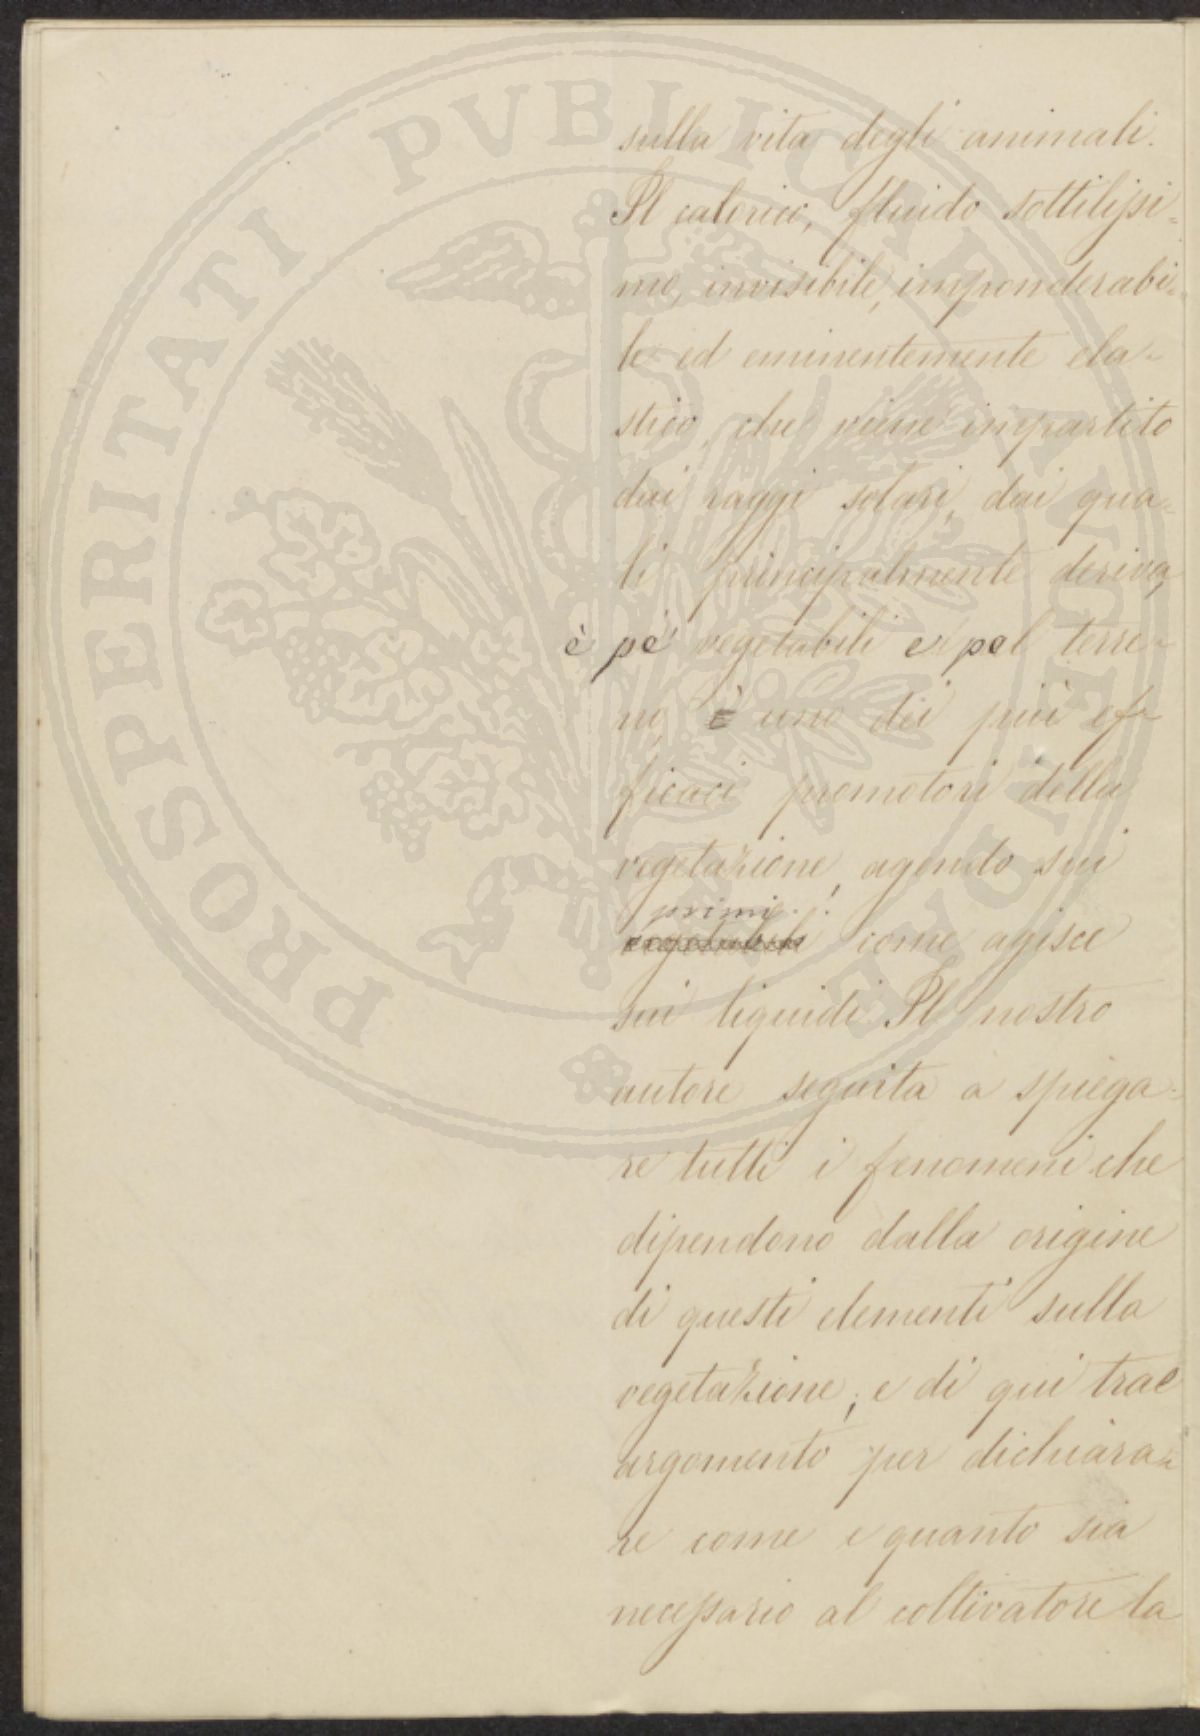 sulla vita degli animali.
Il calorico, fluido sottilissi-
mo, invisibile, imponderabi-
le ed eminentemente ela-
stico, che viene impartito
dai raggi solari, dai qua-
li principalmente deriva,
è pei vegetabili e pel terre-
no, È uno dei più ef-
ficaci promotori della
vegetazione, agendo sui
primi
vegetabili come agisce
sui liquidi. Il nostro
autore seguita a spiega-
re tutti i fenomeni che
dipendono dalla origine
di questi elementi sulla
vegetazione; e di qui trae
argomento per dichiara-
re come e quanto sia
necessario al coltivatore la
PROSPERITATI PVBLICAE AVGENDAE